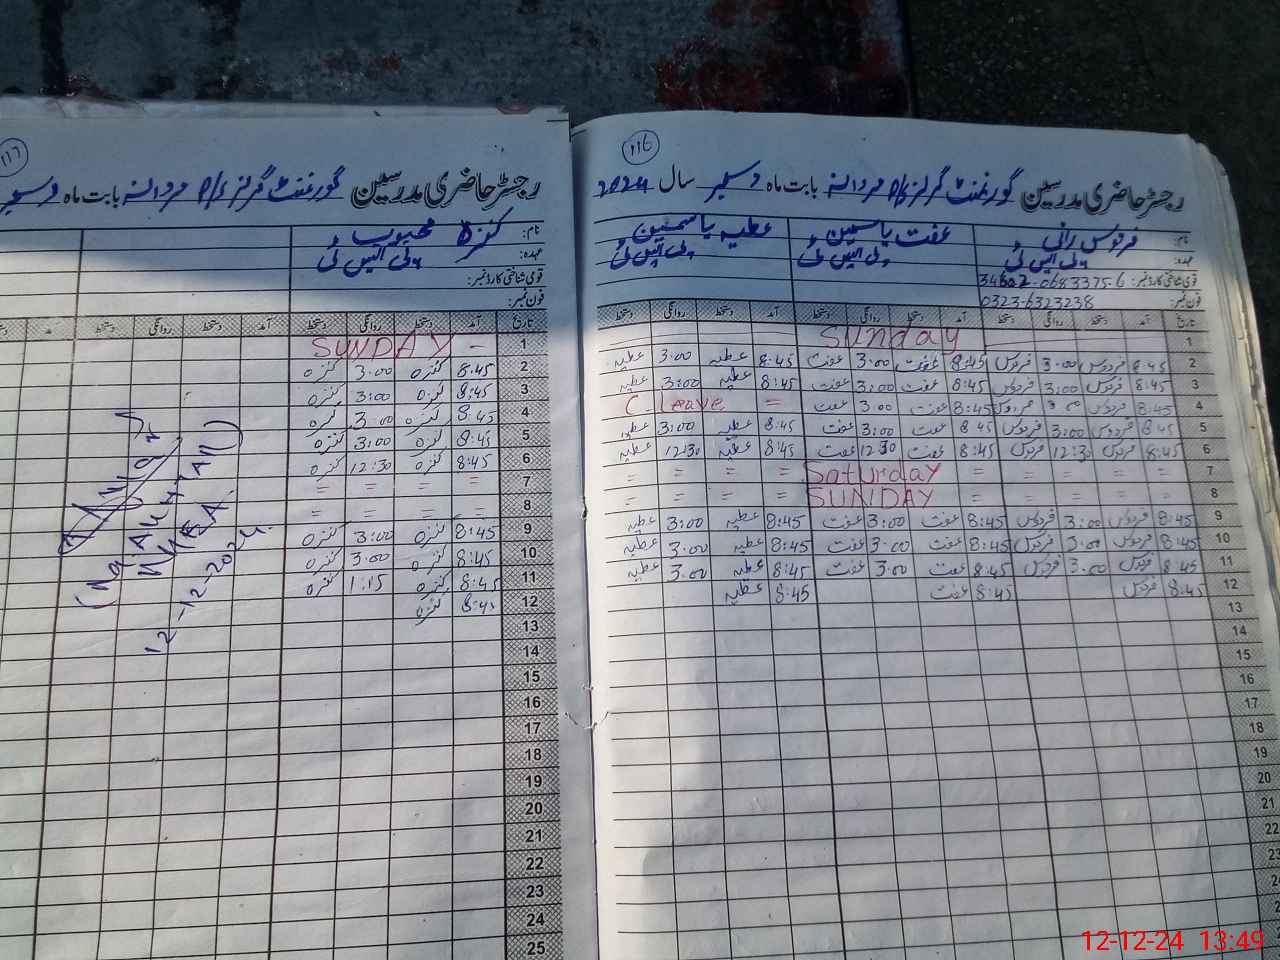 116
رجسٹر حاضری مدرسین گورنمنٹ گرلز P/S مردانہ بابت ماہ دسمبر سال 2024
نام: فردوس رانی عفت یاسمین عطیہ یاسمین
عہدہ: پی ایس ٹی پی ایس ٹی پی ایس ٹی
قومی شناختی کارڈ نمبر: 34602-0683375-6
فون نمبر: 0323-6323238
تاریخ آمد دستخط روانگی دستخط آمد دستخط روانگی دستخط آمد دستخط روانگی دستخط
1 Sunday
2 8:45 فردوس 3:00 فردوس 8:45 عفت 3:00 عفت 8:45 عطیہ 3:00 عطیہ
3 8:45 فردوس 3:00 فردوس 8:45 عفت 3:00 عفت 8:45 عطیہ 3:00 عطیہ
4 8:45 فردوس 3:00 فردوس 8:45 عفت 3:00 عفت = C. Leave
5 8:45 فردوس 3:00 فردوس 8:45 عفت 3:00 عفت 8:45 عطیہ 3:00 عطیہ
6 8:45 فردوس 12:30 فردوس 8:45 عفت 12:30 عفت 8:45 عطیہ 12:30 عطیہ
7 = = = = = Saturday = = = =
8 = = = = = SUNDAY = = = =
9 8:45 فردوس 3:00 فردوس 8:45 عفت 3:00 عفت 8:45 عطیہ 3:00 عطیہ
10 8:45 فردوس 3:00 فردوس 8:45 عفت 3:00 عفت 8:45 عطیہ 3:00 عطیہ
11 8:45 فردوس 3:00 فردوس 8:45 عفت 3:00 عفت 8:45 عطیہ 3:00 عطیہ
12 8:45 فردوس 8:45 عفت 8:45 عطیہ
13
14
15
16
17
18
19
20
21
22
117
رجسٹر حاضری مدرسین گورنمنٹ گرلز P/S مردانہ بابت ماہ دسمبر
نام: کنزہ محبوب
عہدہ: پی ایس ٹی
قومی شناختی کارڈ نمبر:
فون نمبر:
تاریخ آمد دستخط روانگی دستخط آمد دستخط روانگی دستخط آمد دستخط
1 SUNDAY
2 8:45 کنزہ 3:00 کنزہ
3 8:45 کنزہ 3:00 کنزہ
4 8:45 کنزہ 3:00 کنزہ
5 8:45 کنزہ 3:00 کنزہ
6 8:45 کنزہ 12:30 کنزہ
7 = = = =
8 = = = =
9 8:45 کنزہ 3:00 کنزہ
10 8:45 کنزہ 3:00 کنزہ
11 8:45 کنزہ 1:15 کنزہ
12 8:45 کنزہ
13
14
15
16
17
18
19
20
21
22
23
24
25
MEA
12-12-2024
12-12-24 13:49